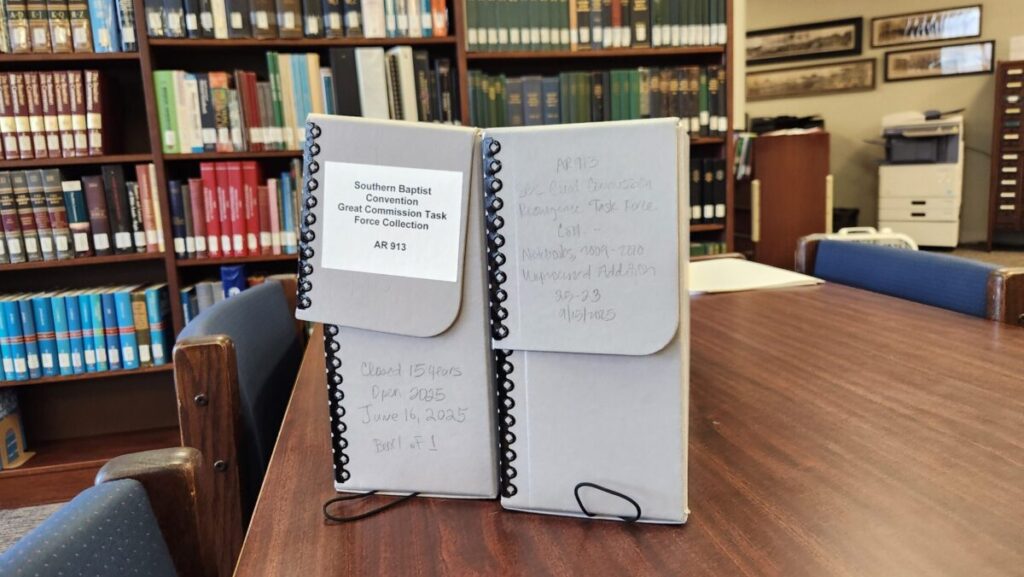 Southern Baptist
Convention
Great Commission Task
Force Collection
AR 913
Closed 15 years
Open 2025
June 16, 2025
Box 1 of 1
AR 913
SBC Great Commission
Resurgence Task Force
Coll.
Notebooks, 2009-2010
Unprocessed Addition
25-23
9/15/2025